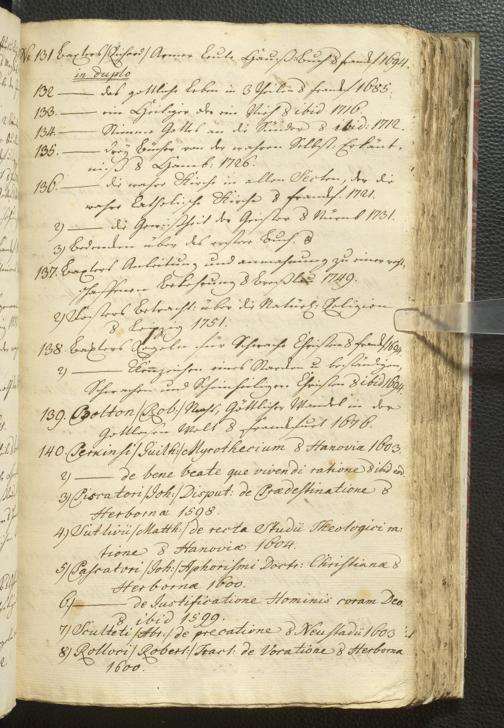 No 131 Baxters /Richard/ Armer Leute Hauß Buch 8 francf 1694.
in duplo
132 —— das göttliche Leben in 3 Theilen 8 francf 1685.
133. —— ein Heiliger oder ein Vieh 8 ibid 1716.
134. —— Stimme Gottes an die Sünder 8 ibid: 1712.
135. —— Bücher von der wahren Selbst-Erkänt-
niß 8 Hamb. 1726.
136. —— die wahre Kirche in allen Secten, oder die
wahre Catholische Kirche 8 francf 1721.
2) —— die Gewißheit der Geister 8 Nürnb 1731.
3) Bedenken über das Buch. 8
137. Baxters Anleitung und anmahnung zu einer recht-
schaffenen Bekehrung 8 Breßlau 1749.
2) Fosters Betracht: über die Natürl: Religion
8 Leipzig 1751.
138. Baxters Regeln für Schwache Christen 8 francf 1694.
2) —— Kennzeichen eines Starken u. beständigen,
Schwachen und Scheinheiligen Christen 8 ibid 1694
139. Bolton /Rob:/ Göttlicher Wandel in der
Gottlosen Welt 8 franckfurt 1676.
140. Perkinsi /Guilh:/ Mycothecium 8 Hanovia 1603.
2) —— de bene beate que vivendi ratione 8 ibid
3) Piscatori /Joh:/ Disput: de Prædestinatione 8
Herborna 1598.
4) Sutlivii /Matth:/ de recta Studii Theologici ra-
tione 8 Hanovia 1604.
5) Pascatori /Joh:/ Aphorismi Doctr: Christiana 8
Herborna 1600.
6) —— de Justificatione Hominis coram Deo
8 ibid 1599.
7) Sculteti /Abr:/ de precatione 8 Neustadii 1603
8) Rolloci /Robert:/ Tract: de Vocatione 8 Herborna
1600.